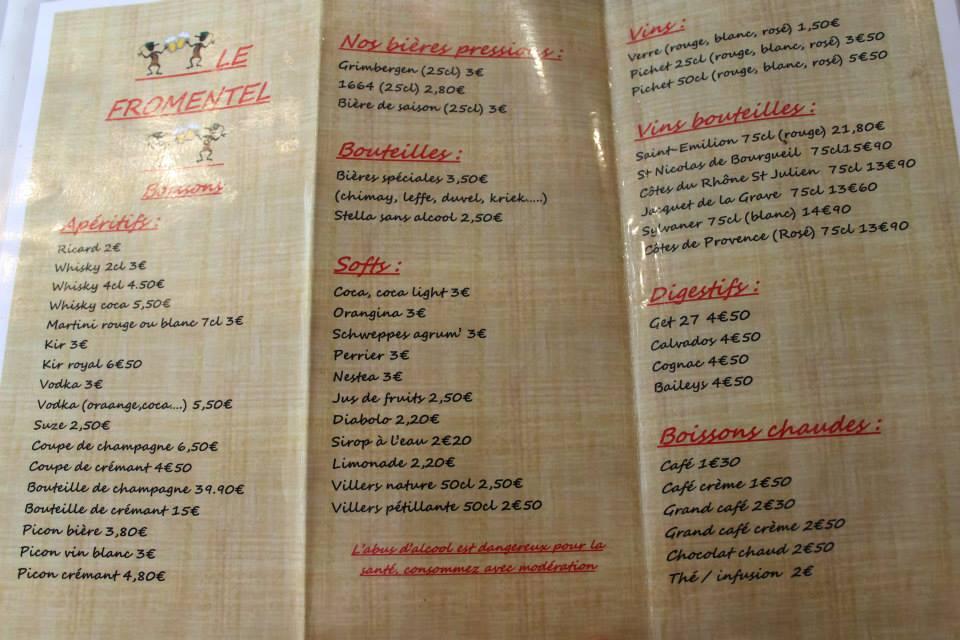 LE
FROMENTEL
Boissons
Apéritifs :
Ricard 2€
Whisky 2cl 3€
Whisky 4cl 4.50€
Whisky coca 5,50€
Martini rouge ou blanc 7cl 3€
Kir 3€
Kir royal 6€50
Vodka 3€
Vodka (oraange,coca....) 5,50€
Suze 2,50€
Coupe de champagne 6,50€
Coupe de crémant 4€50
Bouteille de champagne 39.90€
Bouteille de crémant 15€
Picon bière 3,80€
Picon vin blanc 3€
Picon crémant 4,80€
Nos bières pressions :
Grimbergen (25cl) 3€
1664 (25cl) 2,80€
Bière de saison (25cl) 3€
Bouteilles :
Bières spéciales 3,50€
(chimay, leffe, duvel, kriek.....)
Stella sans alcool 2,50€
Softs :
Coca, coca light 3€
Orangina 3€
Schweppes agrum' 3€
Perrier 3€
Nestea 3€
Jus de fruits 2,50€
Diabolo 2,20€
Sirop à l'eau 2€20
Limonade 2,20€
Villers nature 50cl 2,50€
Villers pétillante 50cl 2€50
L'abus d'alcool est dangereux pour la
santé, consommez avec modération
Vins :
Verre (rouge, blanc, rosé) 1,50€
Pichet 25cl (rouge, blanc, rosé) 3€50
Pichet 50cl (rouge, blanc, rosé) 5€50
Vins bouteilles :
Saint-Emilion 75cl (rouge) 21,80€
St Nicolas de Bourgueil 75cl15€90
Côtes du Rhône St Julien 75cl 13€90
Jacquet de la Grave 75cl 13€60
Sylvaner 75cl (blanc) 14€90
Côtes de Provence (Rosé) 75cl 13€90
Digestifs :
Get 27 4€50
Calvados 4€50
Cognac 4€50
Baileys 4€50
Boissons chaudes :
Café 1€30
Café crème 1€50
Grand café 2€30
Grand café crème 2€50
Chocolat chaud 2€50
Thé / infusion 2€